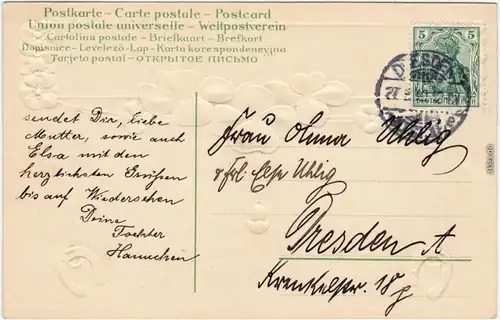 Postkarte - Carte postale - Postcard
Union postale universelle - Weltpostverein
Cartolina postale - Briefkaart - Brefkort
Dopisnice - Levelező-Lap - Karta korespondencyjna
Tarjeta postal - ОТКРЫТОЕ ПИСЬМО
5 5
DEUTSCHES REICH
DRESDEN
27
sendet Dir, liebe
Mutter, sowie auch
Elsa mit den
herzlichsten Grüßen
bis auf Wiedersehen
Deine
Tochter
Hannchen
Frau Uhlig
& Frl. Else Uhlig
Dresden A
Krenkelstr. 18